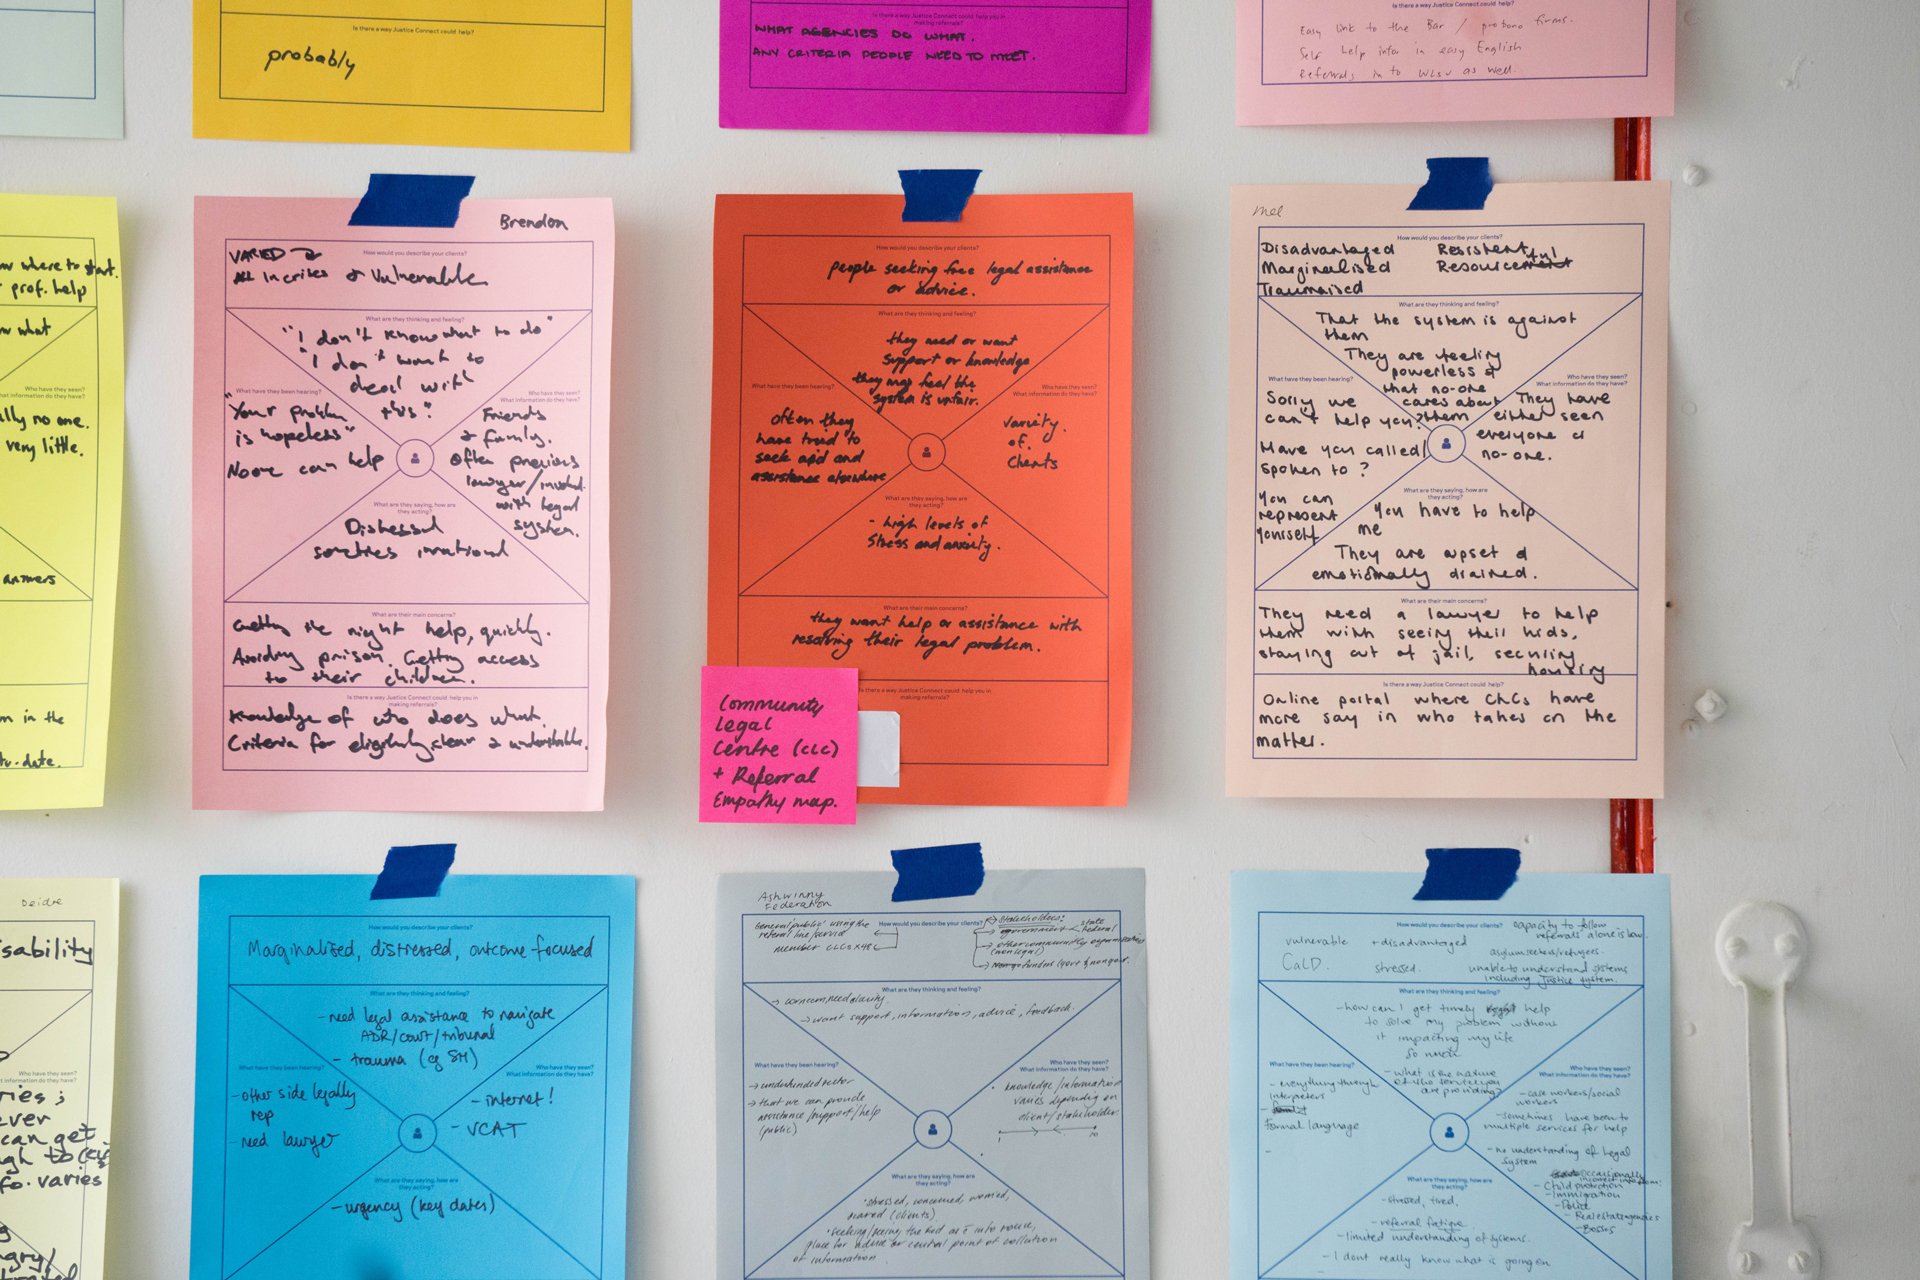 Is there a way Justice Connect could help?
probably
Is there a way Justice Connect could help you in
making referrals?
WHAT AGENCIES DO WHAT.
ANY CRITERIA PEOPLE NEED TO MEET.
Is there a way Justice Connect could help?
Easy link to the Bar / probono firms.
Self help infor in easy English
Referrals in to WLSV as well.
where to start.
prof. help
what
lly no one.
very little.
answers
m in the
date.
Brendon
How would you describe your clients?
VARIED
ALL In crises & Vulnerable
What are they thinking and feeling?
"I don't know what to do"
"I don't want to
deal with
this"
What have they been hearing?
"Your problem
is hopeless"
No one can help
Who have they seen?
What information do they have?
Friends
& family.
Often previous
lawyer/
with legal
system.
What are they saying, how are
they acting?
Distressed
sometimes irrational
What are their main concerns?
Getting the right help, quickly.
Avoiding prison. Getting access
to their children.
Is there a way Justice Connect could help you in
making referrals?
Knowledge of who does what.
Criteria for eligibility, clear & understandable.
How would you describe your clients?
people seeking free legal assistance
or advice.
What are they thinking and feeling?
they need or want
support or knowledge
they may feel the
system is unfair.
What have they been hearing?
often they
have tried to
seek aid and
assistance elsewhere
Who have they seen?
What information do they have?
variety
of
clients
What are they saying, how are
they acting?
- high levels of
stress and anxiety.
What are their main concerns?
they want help or assistance with
resolving their legal problem.
Is there a way Justice Connect could help you in
making referrals?
Community
Legal
Centre (CLC)
+ Referral
Empathy map.
Mel
How would you describe your clients?
Disadvantaged Resistent
Marginalised Resourceful
Traumatised
What are they thinking and feeling?
That the system is against
them
They are feeling
powerless &
that no-one
cares about
them
What have they been hearing?
Sorry we
can't help you?
Have you called/
spoken to?
You can
represent
yourself
Who have they seen?
What information do they have?
They have
either seen
everyone or
no-one.
What are they saying, how are
they acting?
You have to help
me
They are upset &
emotionally drained.
What are their main concerns?
They need a lawyer to help
them with seeing their kids,
staying out of jail, securing
housing
Is there a way Justice Connect could help?
Online portal where CLCs have
more say in who takes on the
matter.
Deidre
sability
What have they been hearing?
Who have they seen?
What information do they have?
ries;
ever
can get
gh to
fo. varies
How would you describe your clients?
Marginalised, distressed, outcome focused
What are they thinking and feeling?
- need legal assistance to navigate
ADR/court/tribunal
- trauma (eg SH)
What have they been hearing?
- other side legally
rep
- need lawyer
Who have they seen?
What information do they have?
- internet!
- VCAT
What are they saying, how are
they acting?
- urgency (key dates)
Ashwinny
Federation
How would you describe your clients?
General 'public' using the
referral line/service
member CLCs x48
Stakeholders:
government
state
federal
other community organisations
(non legal)
What are they thinking and feeling?
→ concern, need clarity
→ want support, information, advice, feedback.
What have they been hearing?
→ underfunded sector
→ that we can provide
assistance/support/help
(public)
Who have they seen?
What information do they have?
knowledge/information
varies depending on
client/stakeholder
1 10
What are they saying, how are
they acting?
• stressed, concerned, worried,
scared (clients)
place for advice or central point of collation
of information
How would you describe your clients?
vulnerable + disadvantaged
CALD. stressed.
capacity to follow
referrals alone is low.
asylum seekers/refugees.
unable to understand systems
including justice system.
What are they thinking and feeling?
- how can I get timely help
to solve my problem without
it impacting my life
so much
- what is the nature
of the service you
are providing?
What have they been hearing?
- everything through
interpreters
formal language
Who have they seen?
What information do they have?
- case workers/social
workers
- sometimes have been to
multiple services for help
- no understanding of legal
system
- Child protection
- Immigration
- Police
- Real estate agencies
- Bosses
What are they saying, how are
they acting?
- stressed, tired,
- referral fatigue.
- limited understanding of systems.
- I dont really know what is going on